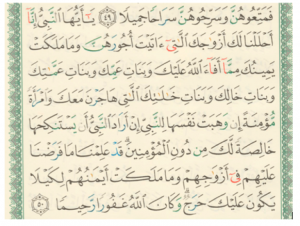 فَمَتِّعُوهُنَّ وَسَرِّحُوهُنَّ سَرَاحًا جَمِيلًا ٤٩ يَٰٓأَيُّهَا ٱلنَّبِيُّ إِنَّآ
أَحْلَلْنَا لَكَ أَزْوَٰجَكَ ٱلَّٰتِيٓ ءَاتَيْتَ أُجُورَهُنَّ وَمَا مَلَكَتْ
يَمِينُكَ مِمَّآ أَفَآءَ ٱللَّهُ عَلَيْكَ وَبَنَاتِ عَمِّكَ وَبَنَاتِ عَمَّٰتِكَ
وَبَنَاتِ خَالِكَ وَبَنَاتِ خَٰلَٰتِكَ ٱلَّٰتِي هَاجَرْنَ مَعَكَ وَٱمْرَأَةً
مُّؤْمِنَةً إِن وَهَبَتْ نَفْسَهَا لِلنَّبِيِّ إِنْ أَرَادَ ٱلنَّبِيُّ أَن يَسْتَنكِحَهَا
خَالِصَةً لَّكَ مِن دُونِ ٱلْمُؤْمِنِينَ ۗ قَدْ عَلِمْنَا مَا فَرَضْنَا
عَلَيْهِمْ فِيٓ أَزْوَٰجِهِمْ وَمَا مَلَكَتْ أَيْمَٰنُهُمْ لِكَيْلَا
يَكُونَ عَلَيْكَ حَرَجٌ ۗ وَكَانَ ٱللَّهُ غَفُورًا رَّحِيمًا ٥٠